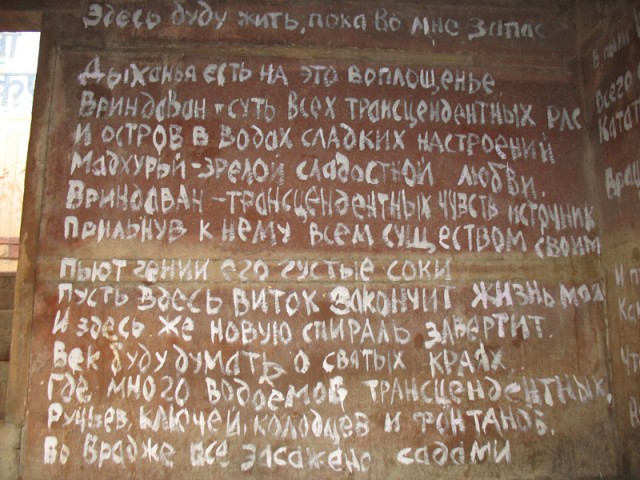 Здесь буду жить, пока во мне запас
Дыханья есть на это воплощенье,
Вриндаван - суть всех трансцендентных рас
И остров в водах сладких настроений
Мадхурьи - зрелой сладостной любви.
Вриндаван - трансцендентных чувств источник
Прильнув к нему всем существом своим
пьют гении его густые соки
Пусть здесь виток закончит жизнь моя
И здесь же новую спираль завертит.
Век буду думать о святых краях,
Где много водоемов трансцендентных,
Ручьев, ключей, колодцев и фонтанов.
Во Врадже все засажено садами
В пыли
Всего
Катат